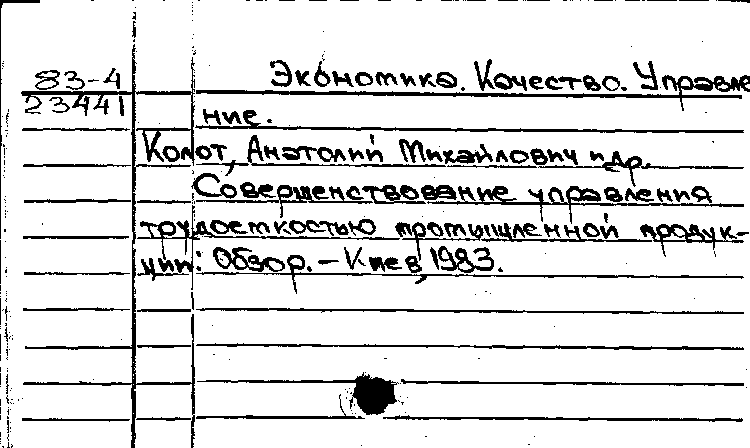 83-4
23441
Экономика. Качество. Управле
ние.
Колот, Анатолий Михайлович и др.
Совершенствование управления
трудоемкостью промышленной продук-
ции: Обзор. – Киев, 1983.